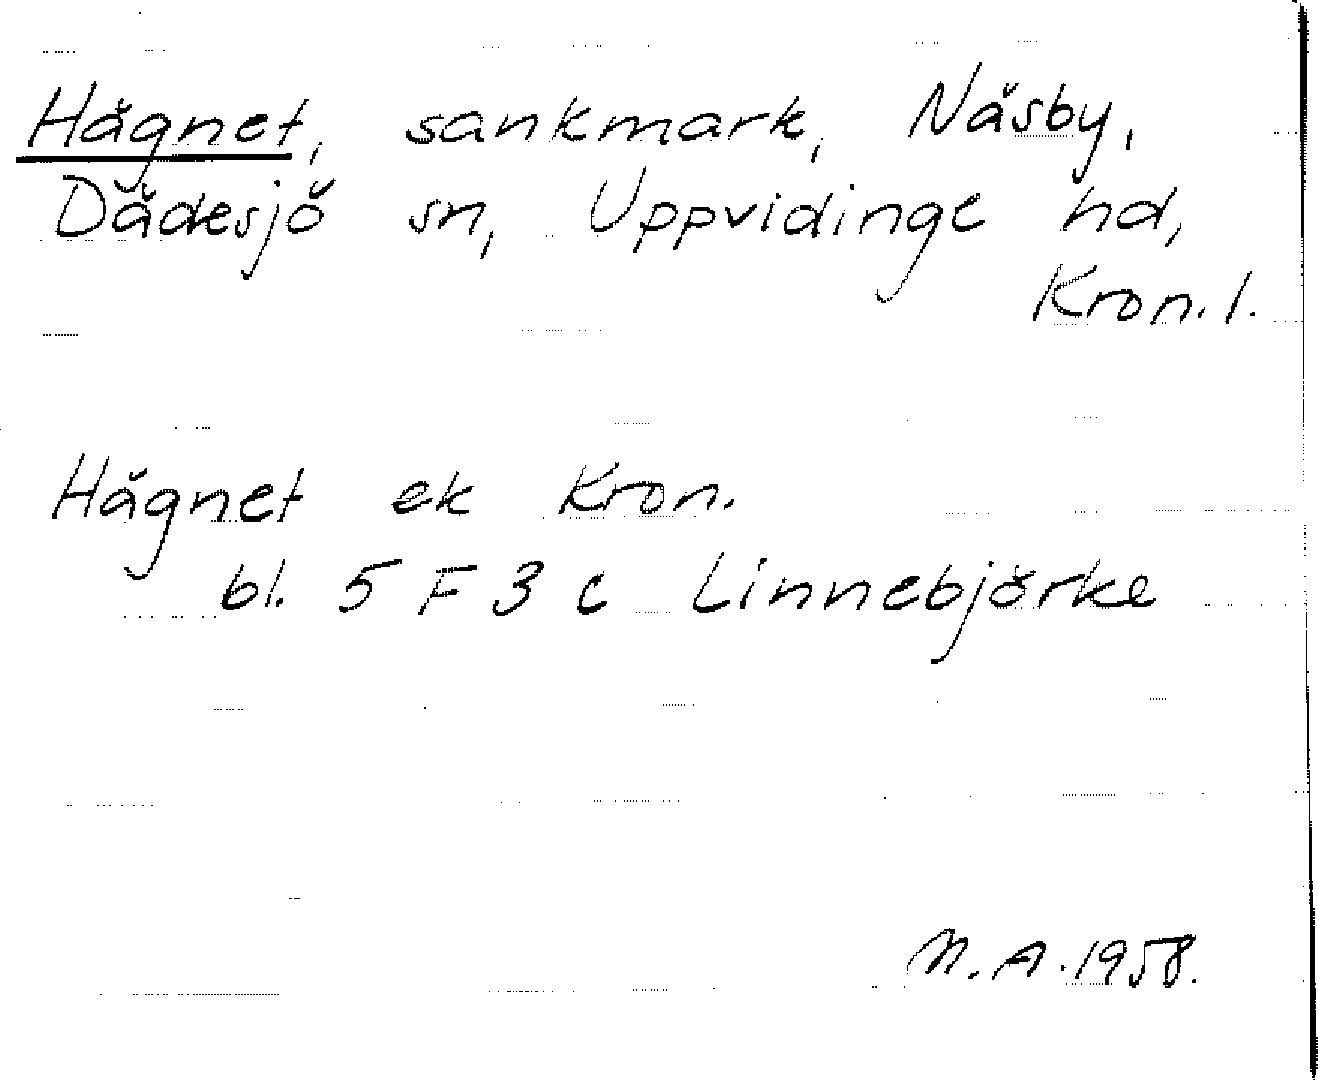 Hägnet, sankmark, Näsby,
Dädesjö sn, Uppvidinge hd,
Kron. l.
Hägnet ek Kron.
bl. 5 F 3 c Linnebjörke
M. A. 1958.